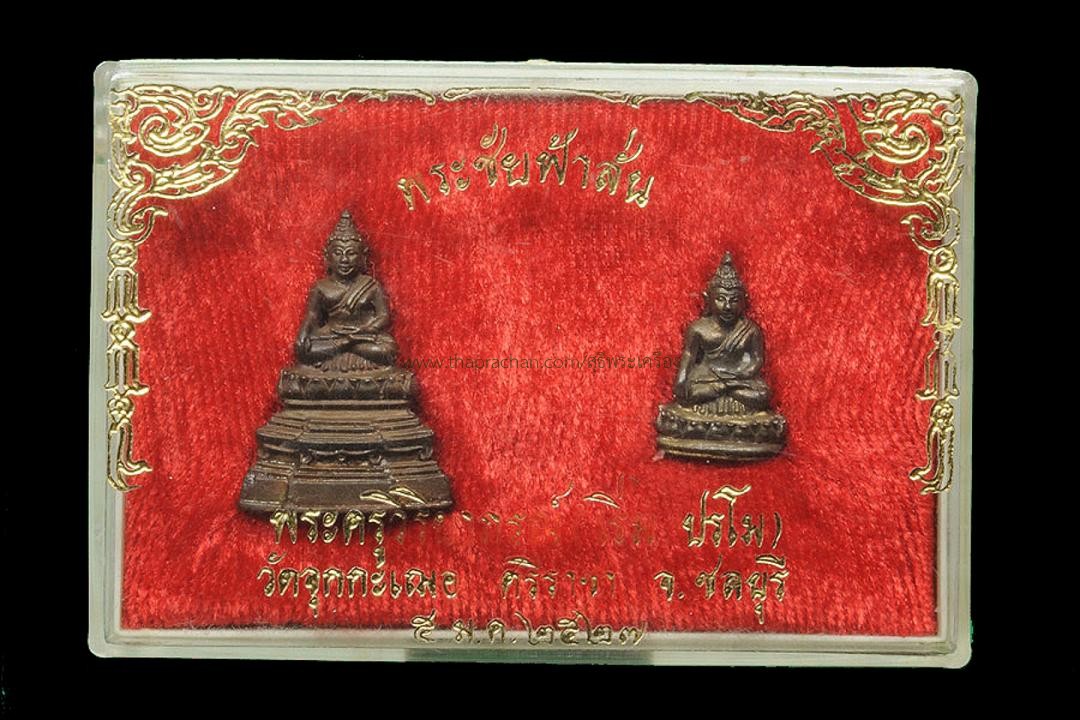 พระชัยฟ้าลั่น
www.thaprachan.com/
พระครู ปรโม)
วัดจุกกะเฌอ ศรีราชา จ.ชลบุรี
๕ ม.ค.๒๕๒๗